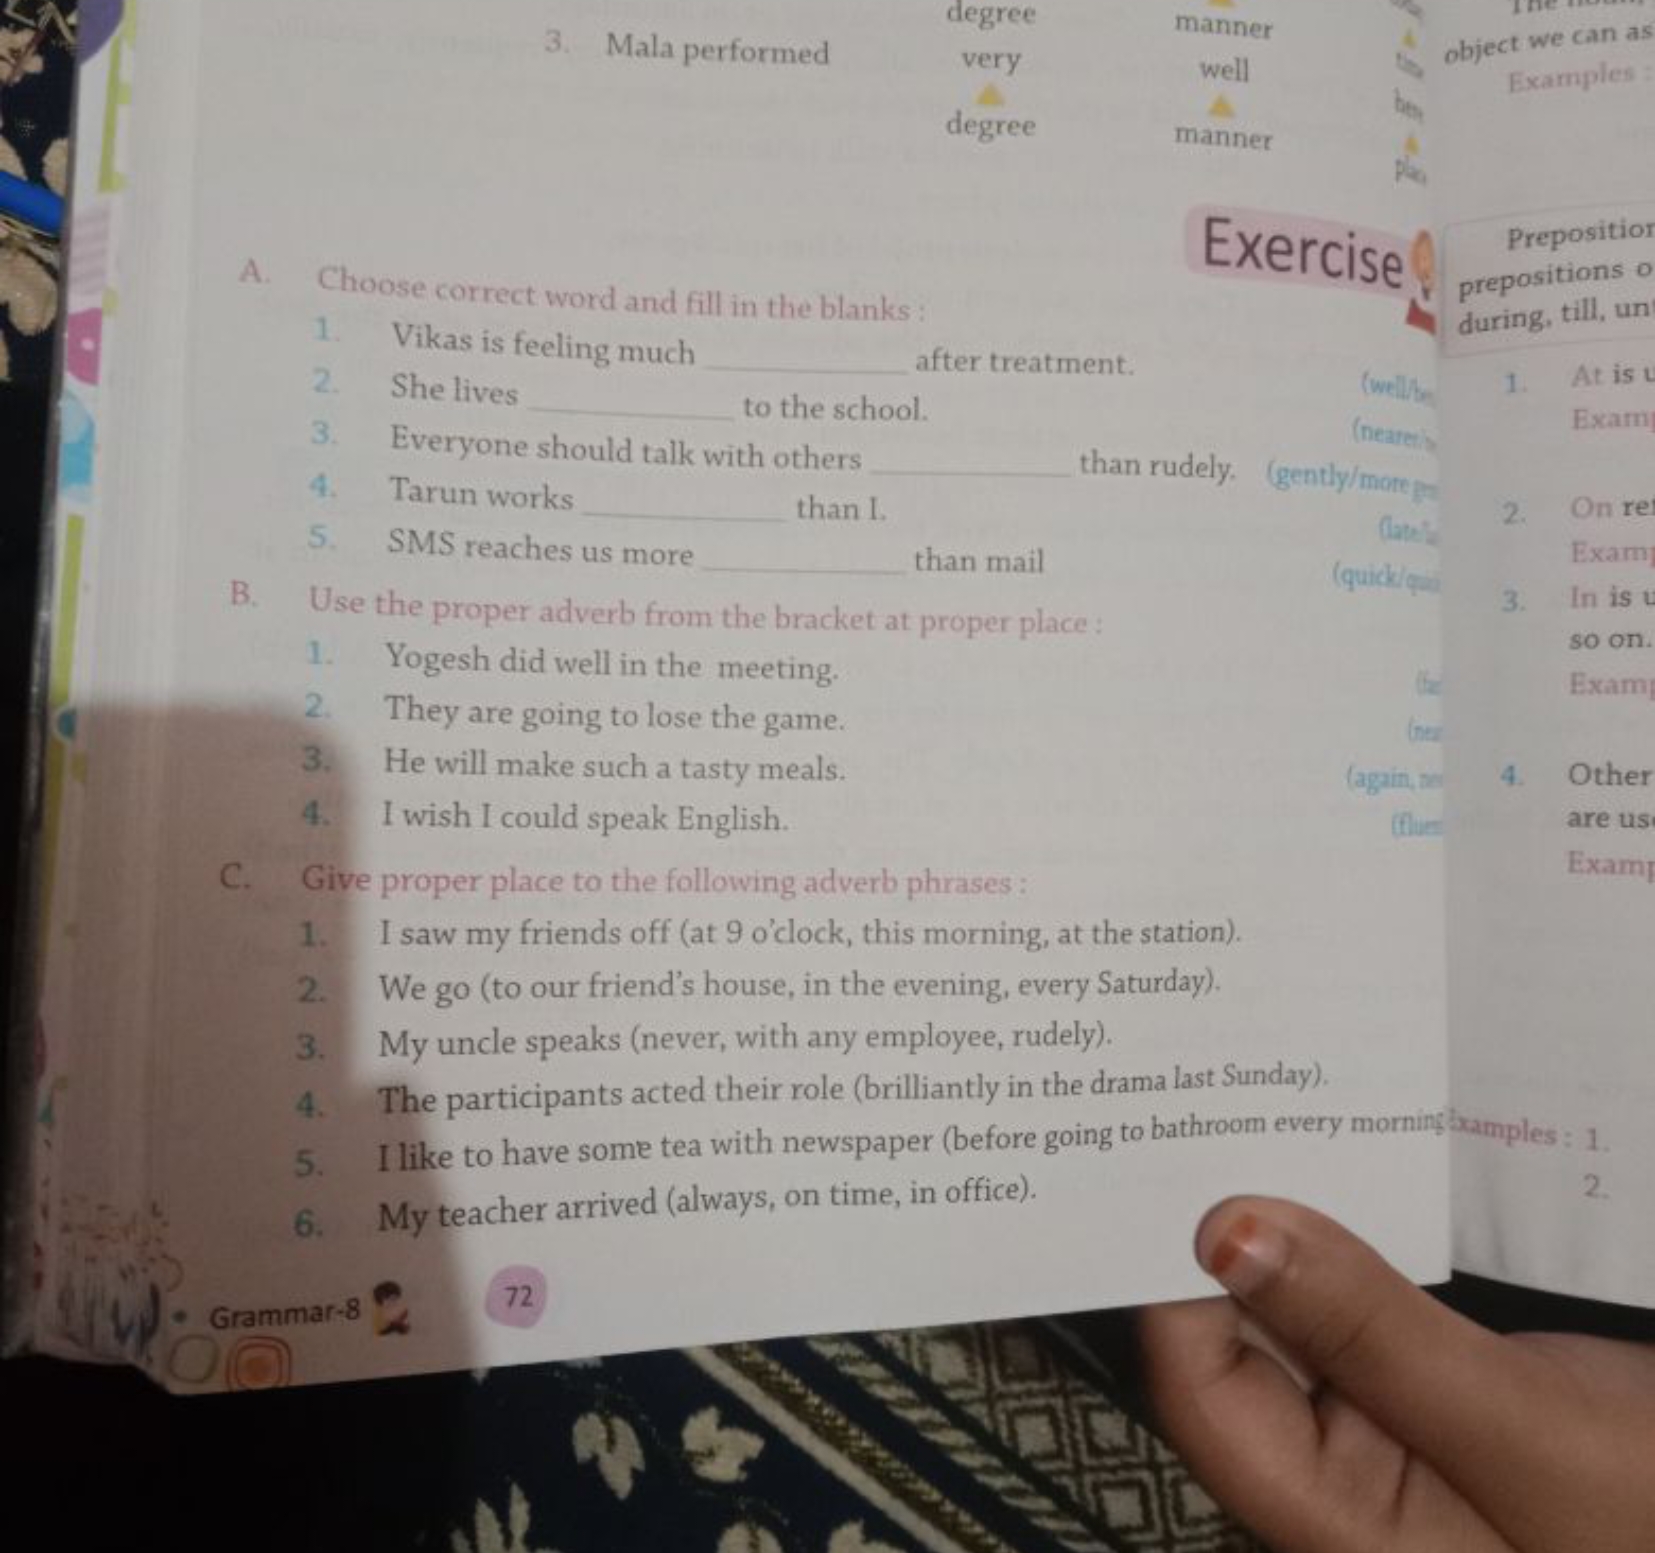 degree manner
3. Mala performed very well here
degree manner place
Exercise
A. Choose correct word and fill in the blanks :
1. Vikas is feeling much ____________ after treatment. (well/
2. She lives ____________ to the school. (nearer/
3. Everyone should talk with others ____________ than rudely. (gently/more
4. Tarun works ____________ than I. (late/
5. SMS reaches us more ____________ than mail (quick/
B. Use the proper adverb from the bracket at proper place :
1. Yogesh did well in the meeting.
2. They are going to lose the game.
3. He will make such a tasty meals. (again,
4. I wish I could speak English.
C. Give proper place to the following adverb phrases :
1. I saw my friends off (at 9 o'clock, this morning, at the station).
2. We go (to our friend's house, in the evening, every Saturday).
3. My uncle speaks (never, with any employee, rudely).
4. The participants acted their role (brilliantly in the drama last Sunday).
5. I like to have some tea with newspaper (before going to bathroom every morning
6. My teacher arrived (always, on time, in office).
Grammar-8 72
object we can as
Examples :
prepositions
during, till,
1. At is
2. On
3. In is
so on.
4. Other
are
Examples : 1.
2.